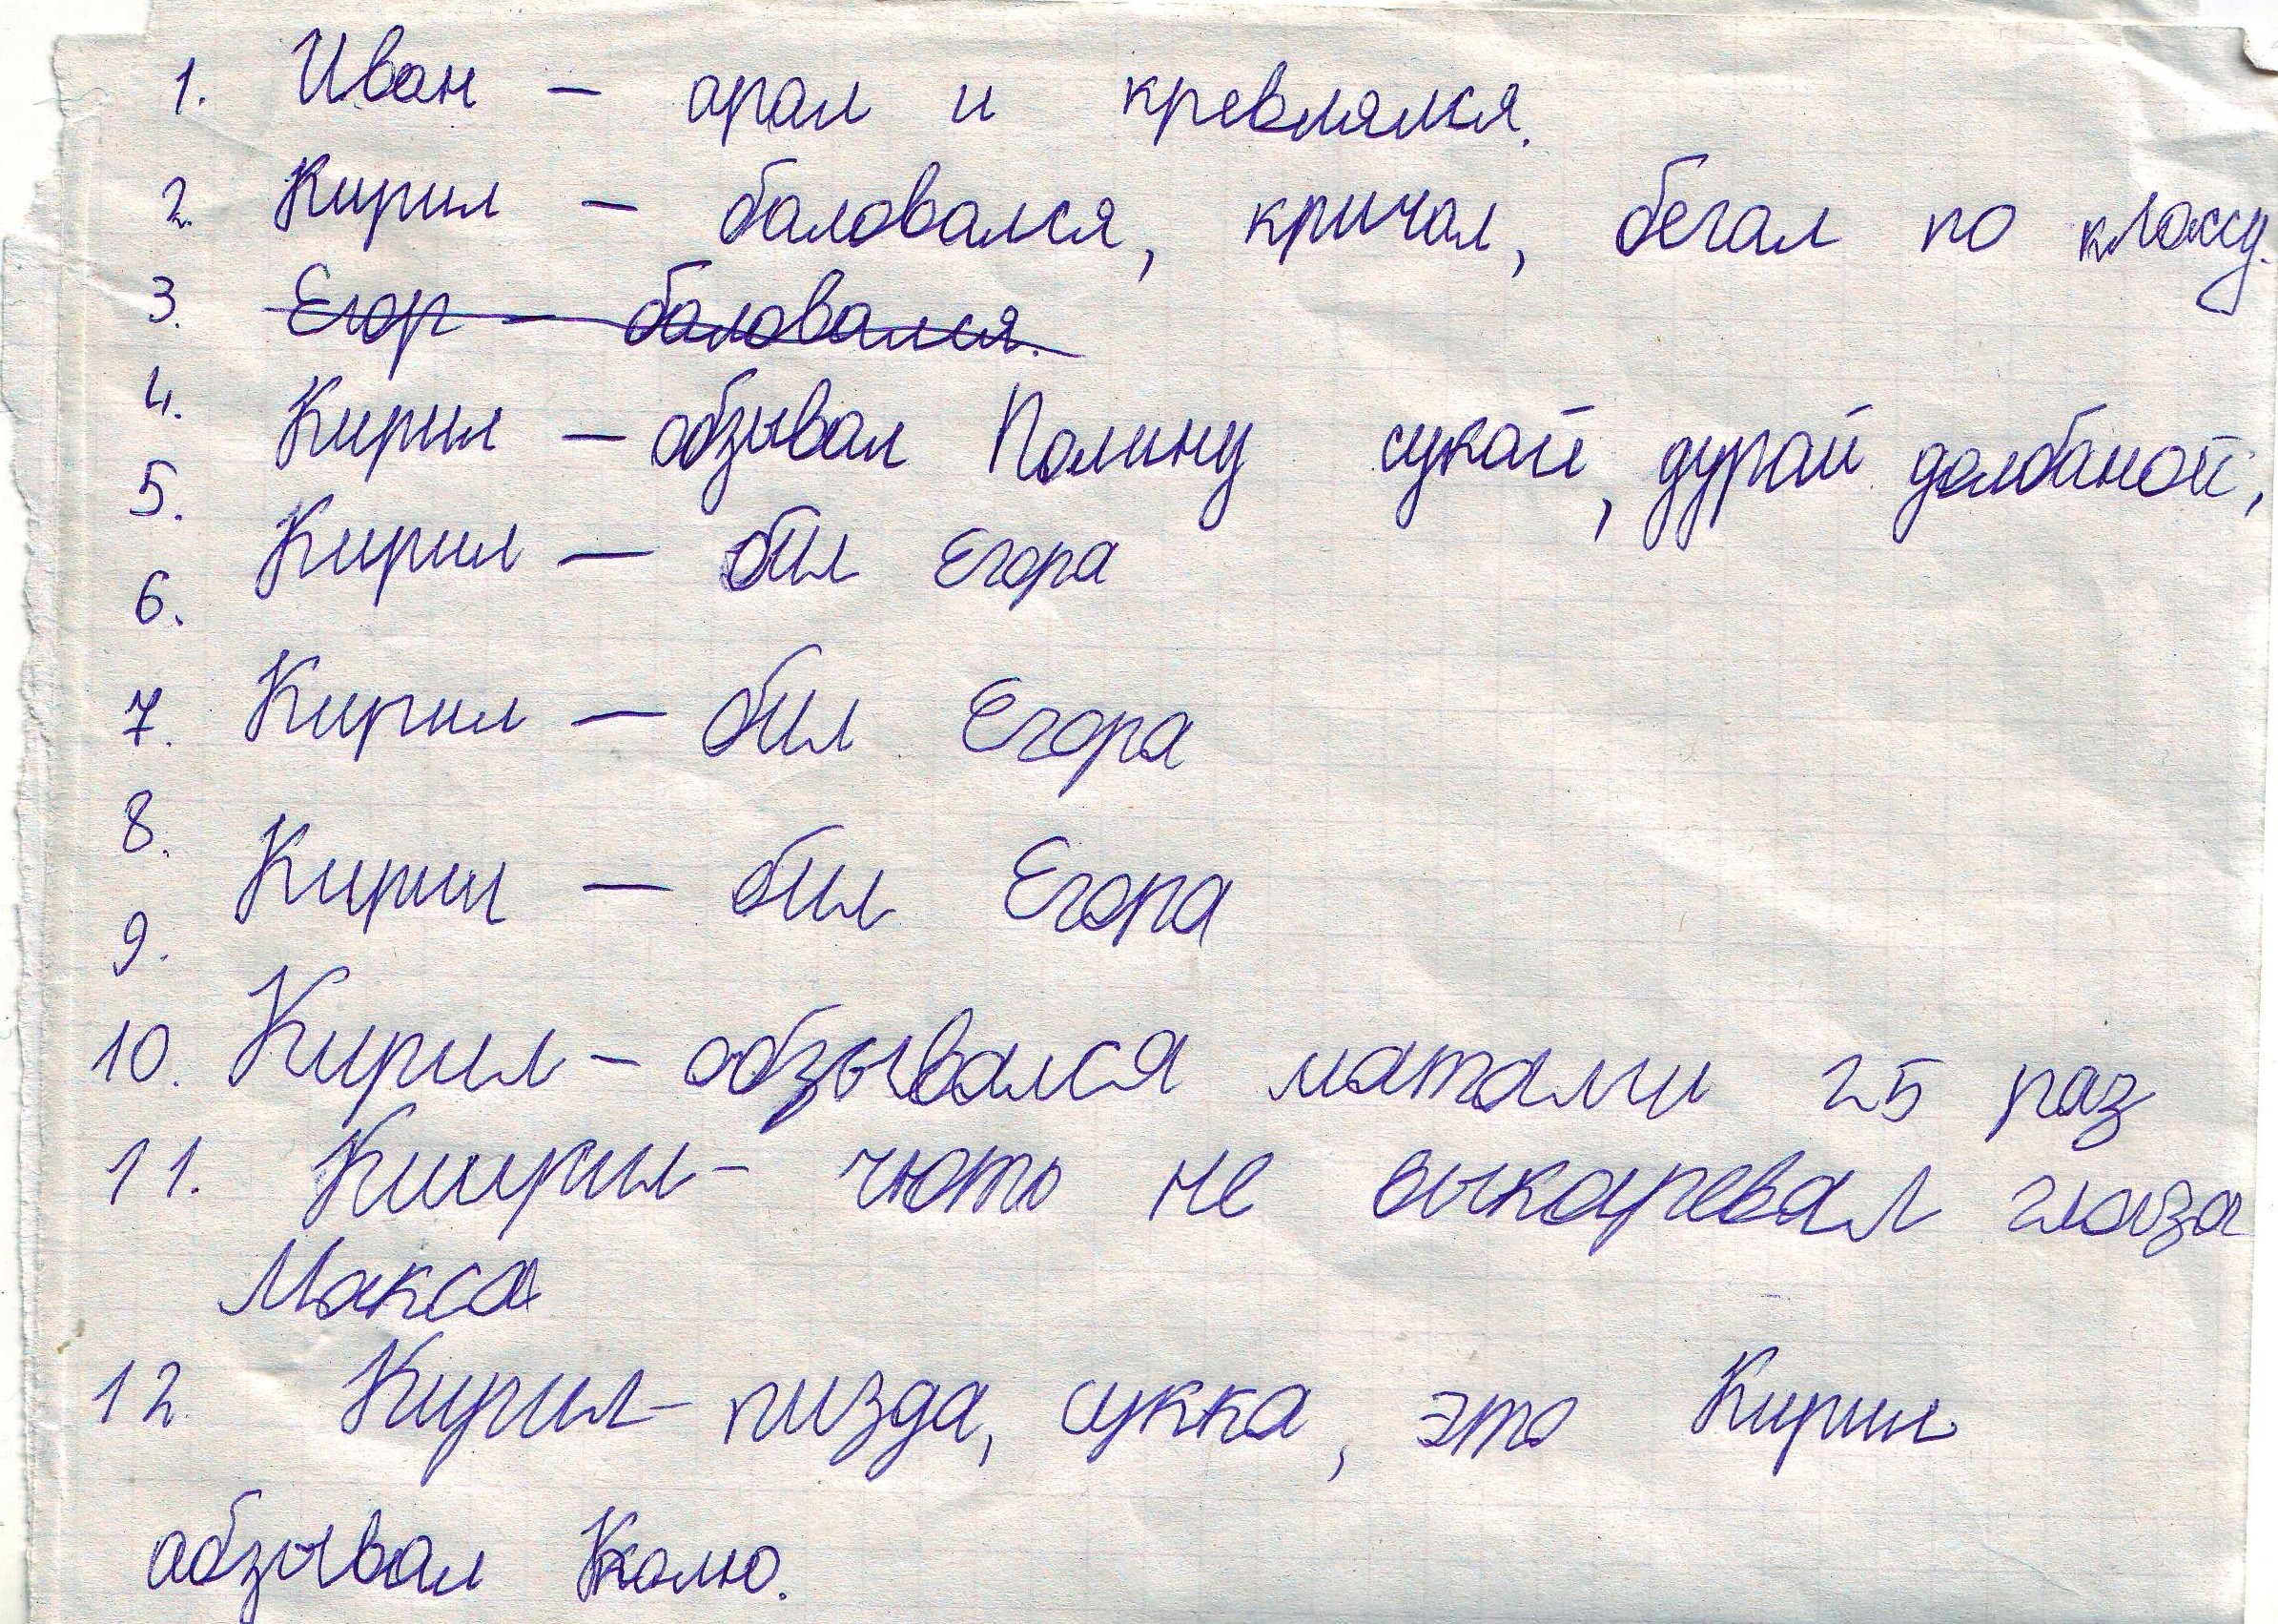 1. Иван – арал и кревлялся.
2. Кирил – баловался, кричал, бегал по классу.
3. Егор – баловался.
4. Кирил – обзывал Полину сукай, дурай долбаной,
5. Кирил – бил Егора
6.
7. Кирил – бил Егора
8. Кирил – бил Егора
9.
10. Кирил – обзывался матами 25 раз
11. Киирил – чють не выкаревал глаза
Макса
12. Кирил – пизда, сукка, это Кирил
абзывал Колю.